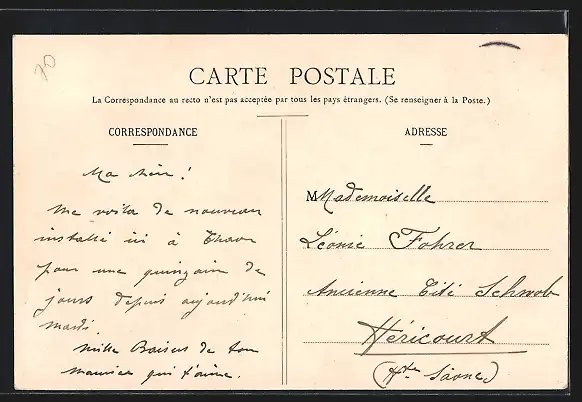 70
CARTE POSTALE
La Correspondance au recto n'est pas acceptée par tous les pays étrangers. (Se renseigner à la Poste.)
CORRESPONDANCE
Ma !
me voila de nouveau
installé ici à
pour une quinzaine de
jours depuis aujourd'hui
mardi
mille Baisers de ton
maurice qui t'aime.
ADRESSE
Mademoiselle
Léonie Fohrer
Ancienne Cité Schwob
Héricourt
(Hte Saone)